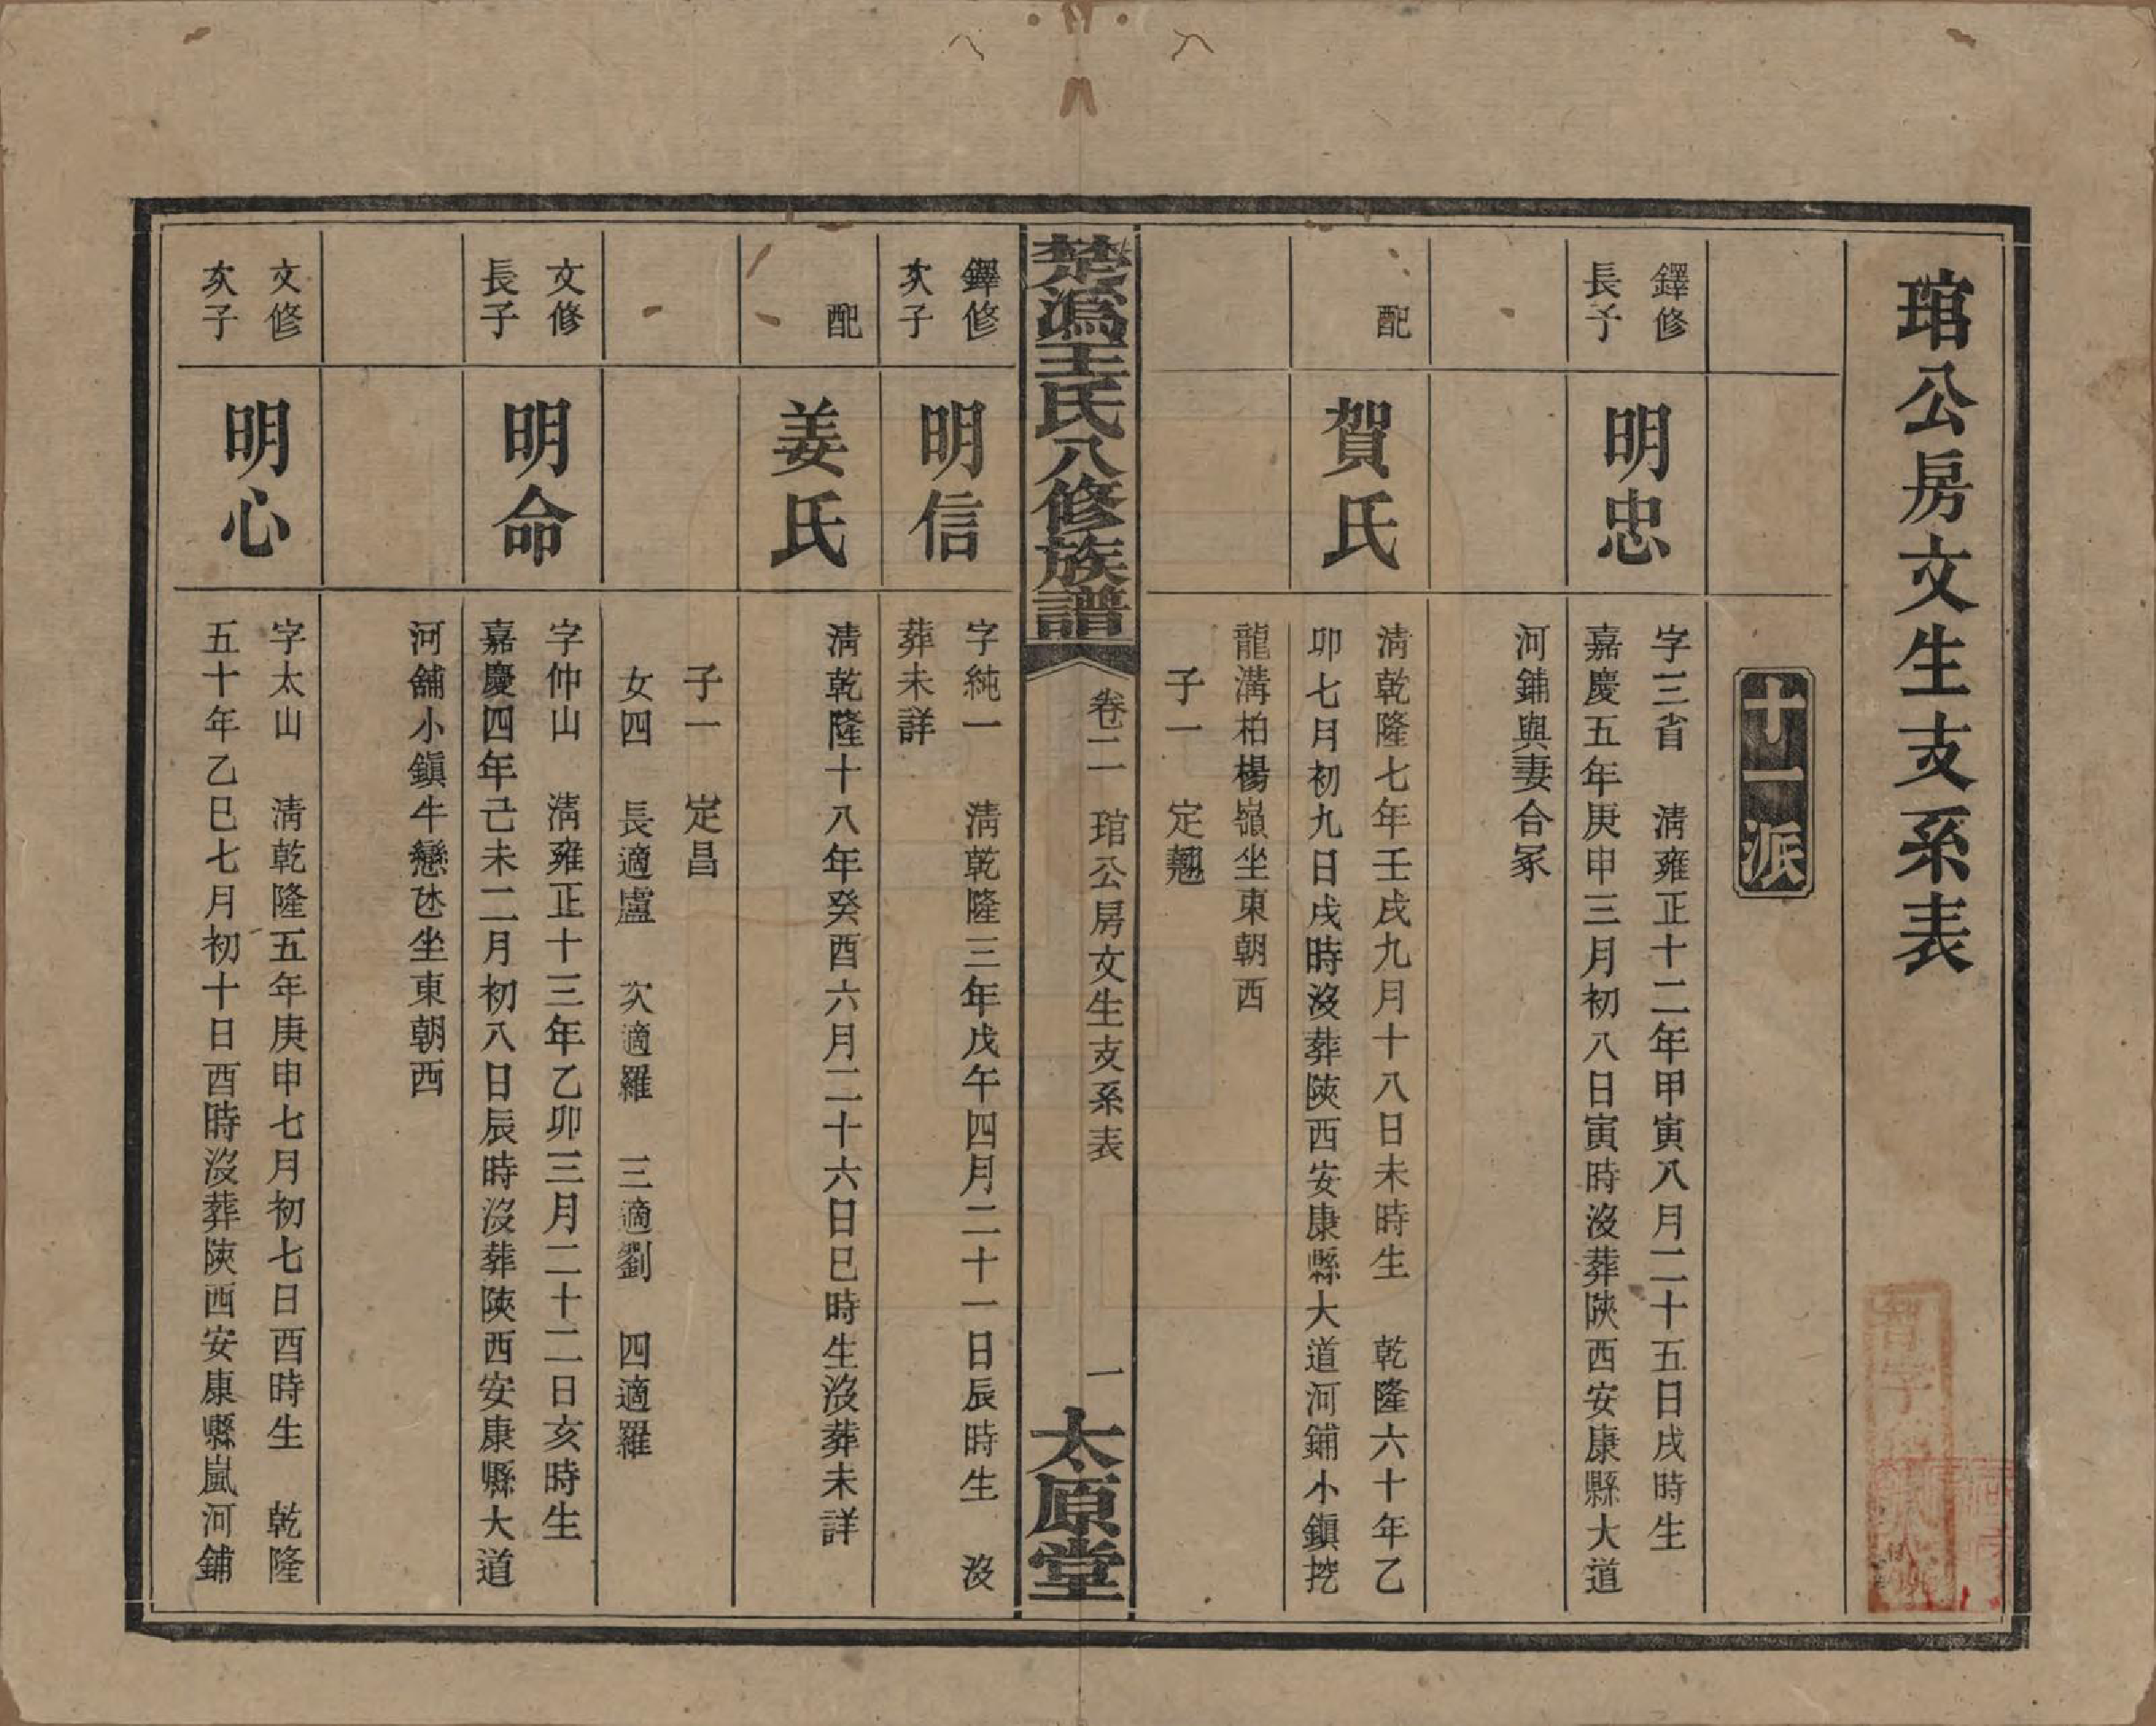 琯公房文生支系表
十一派
鐸修
長子
明忠
字三省　清雍正十二年甲寅八月二十五日戌時生
嘉慶五年庚申三月初八日寅時沒葬陝西安康縣大道
河鋪與妻合冢
配
賀氏
清乾隆七年壬戌九月十八日未時生　乾隆六十年乙
卯七月初九日戌時沒葬陝西安康縣大道河鋪小鎭挖
龍溝柏楊嶺坐東朝西
子一　定魁
楚溈王氏八修族譜
卷二　琯公房文生支系表
一
太原堂
鐸修
次子
明信
字純一　清乾隆三年戊午四月二十一日辰時生　沒
葬未詳
配
姜氏
清乾隆十八年癸酉六月二十六日巳時生沒葬未詳
子一　定昌
女四　長適盧　次適羅　三適劉　四適羅
文修
長子
明命
字仲山　清雍正十三年乙卯三月二十二日亥時生
嘉慶四年己未二月初八日辰時沒葬陝西安康縣大道
河舖小鎭牛戀氹坐東朝西
文修
次子
明心
字太山　清乾隆五年庚申七月初七日酉時生　乾隆
五十年乙巳七月初十日酉時沒葬陝西安康縣嵐河鋪